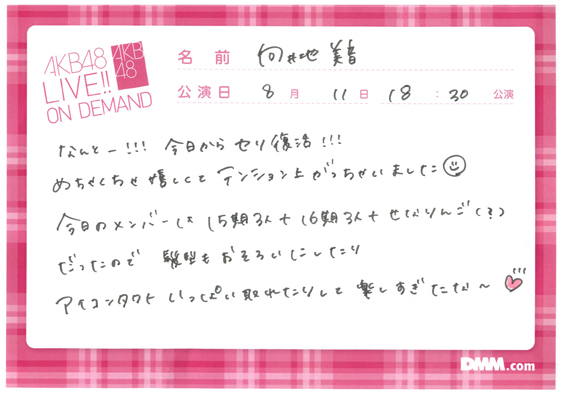 AKB48
LIVE!!
ON DEMAND
AKB
48
名前 向井地 美音
公演日 8月 11日 18:30 公演
なんとー!!! 今日から セリ復活!!!
めちゃくちゃ嬉しくて テンション上がっちゃいました
今日のメンバーは 15期3人+16期3人+せなりんご(?)
だったので 髪型もおそろいにしたり
アイコンタクト いっぱい取れたりして 楽しすぎたな〜
DMM.com